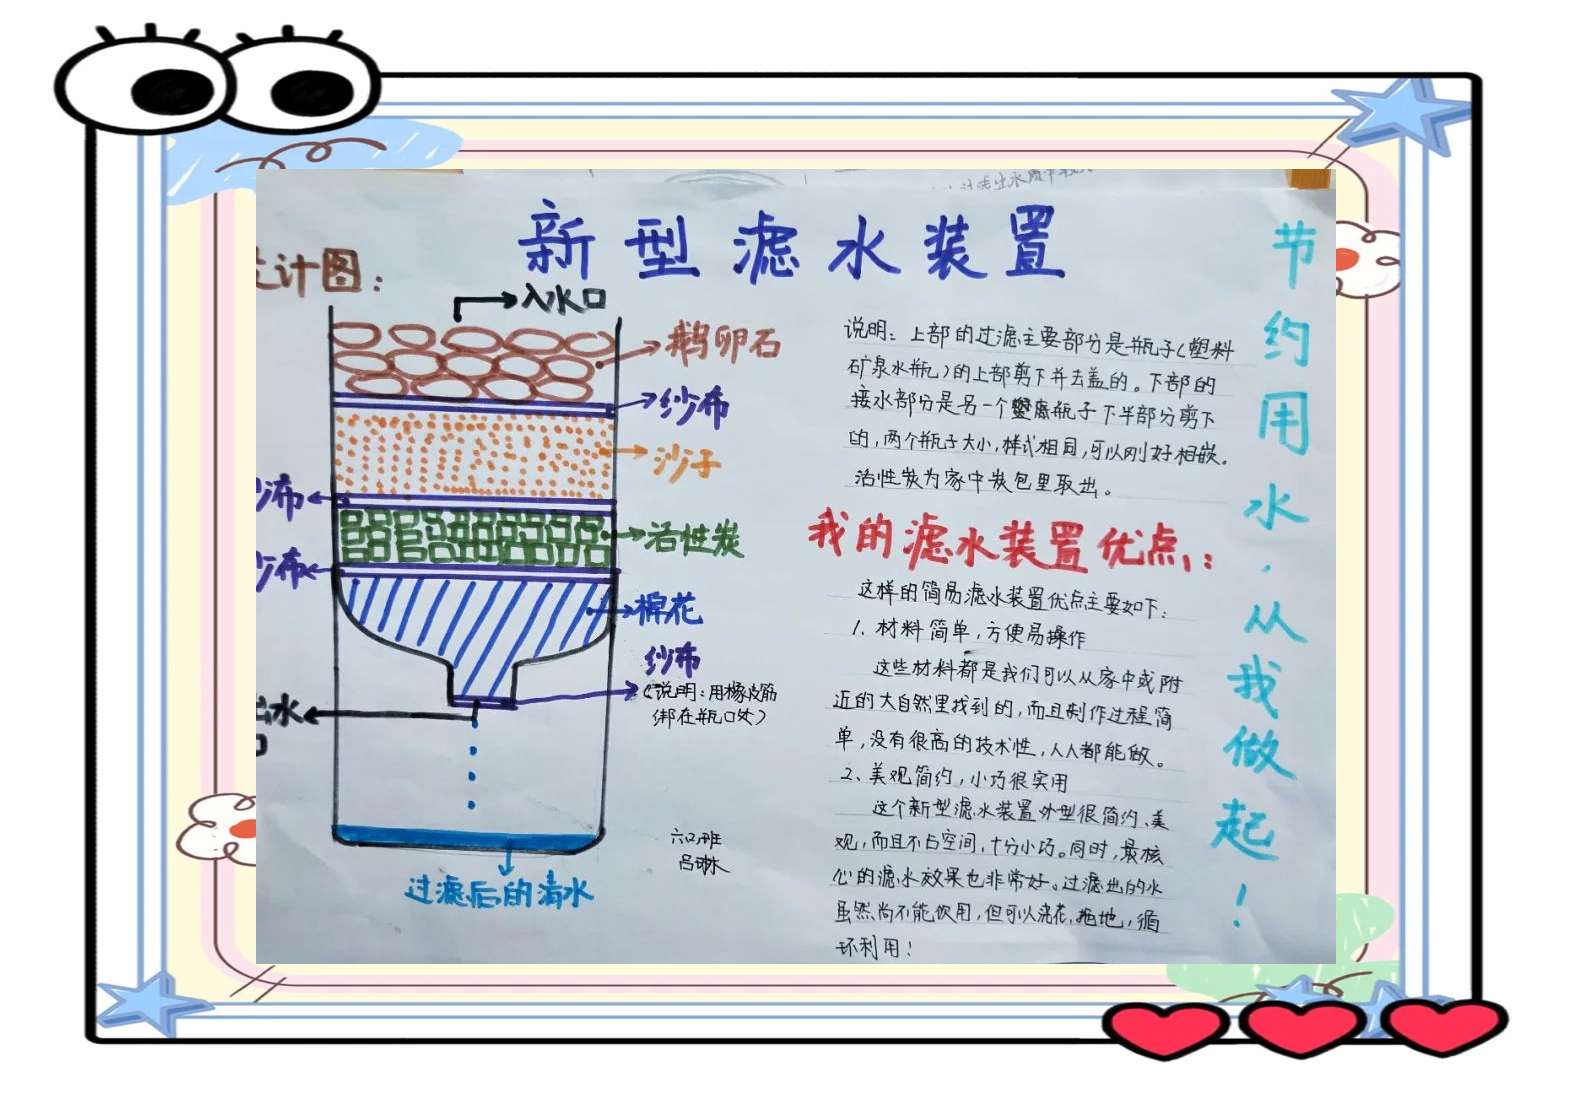 新型滤水装置
计图：
入水口
鹅卵石
纱布
沙子
纱布
活性炭
纱布
棉花
纱布
（说明：用橡皮筋
绑在瓶口处）
出水
口
过滤后的清水
六（2）班
吕琳
说明：上部的过滤主要部分是瓶子（塑料
矿泉水瓶）的上部剪下并去盖的。下部的
接水部分是另一个瓶子下半部分剪下
的，两个瓶子大小，样式相同，可以刚好相嵌。
活性炭为家中炭包里取出。
我的滤水装置优点：
这样的简易滤水装置优点主要如下：
1. 材料简单，方便易操作
这些材料都是我们可以从家中或附
近的大自然里找到的，而且制作过程简
单，没有很高的技术性，人人都能做。
2、美观简约，小巧很实用
这个新型滤水装置外型很简约、美
观，而且不占空间，十分小巧。同时，最核
心的滤水效果也非常好。过滤出的水
虽然尚不能饮用，但可以浇花，拖地，循
环利用！
节约用水，从我做起！